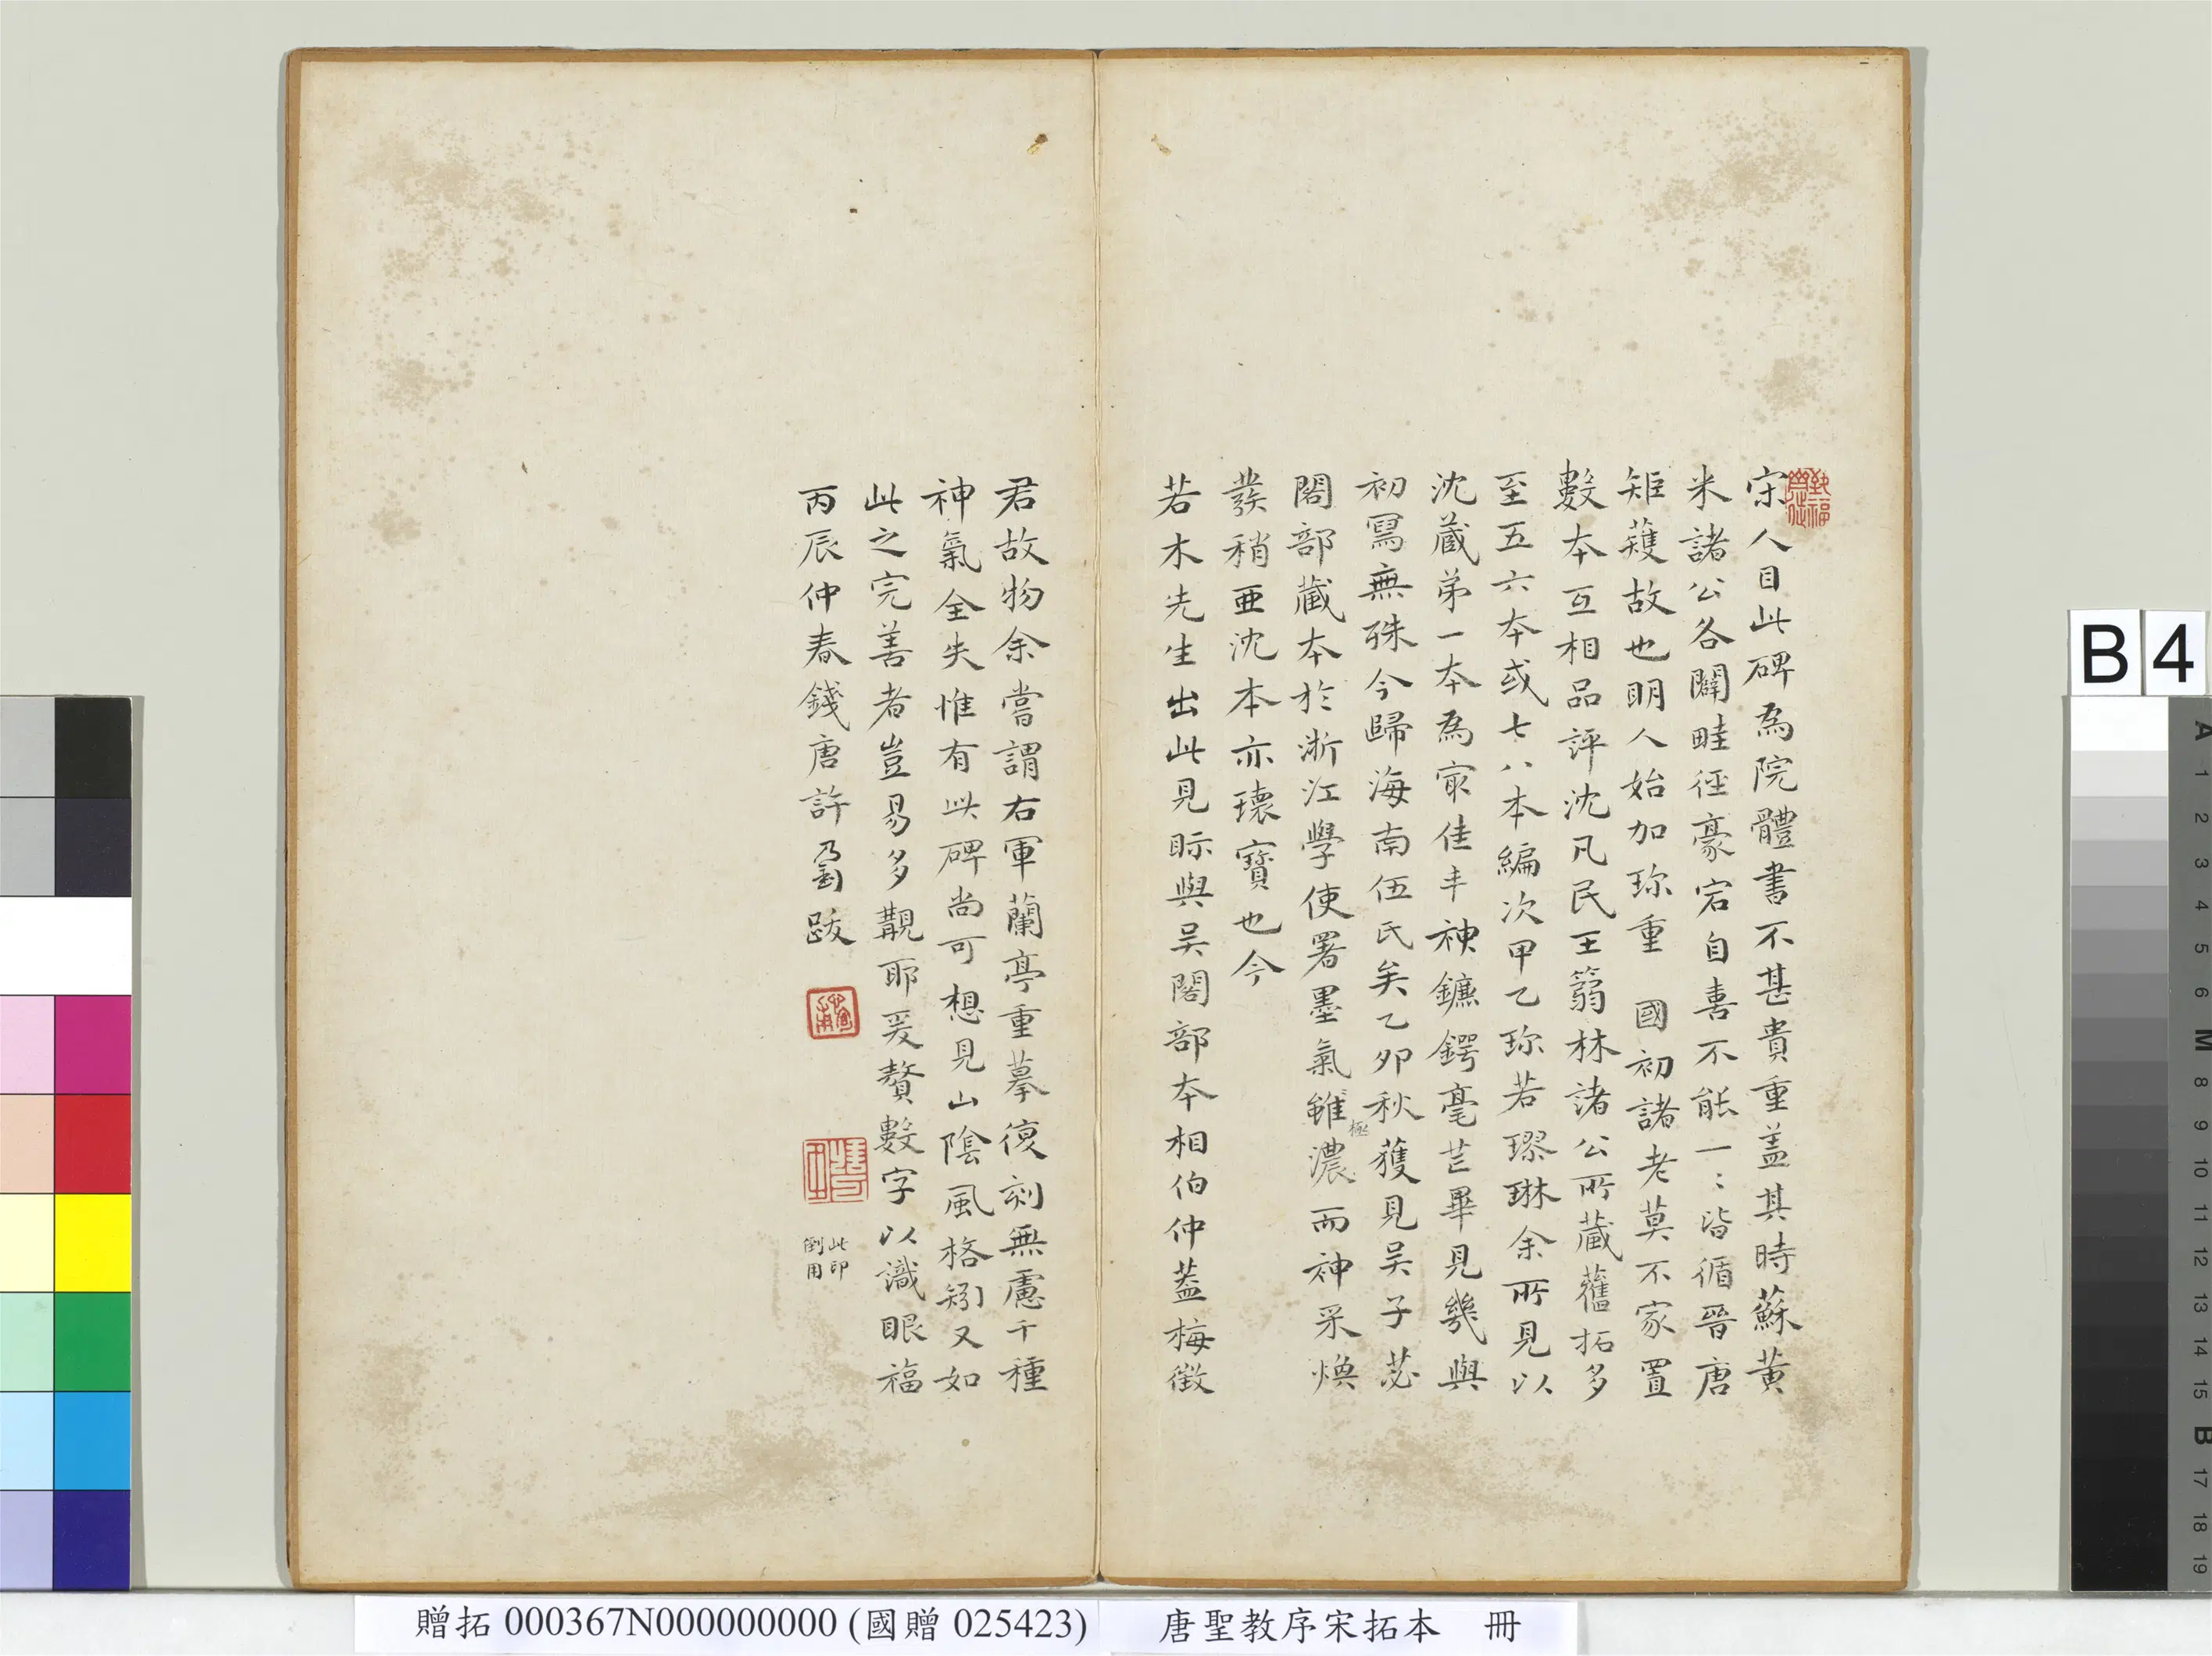 宋人目此碑為院體書不甚貴重盖其時蘇黃
米諸公各闢畦徑豪宕自喜不能一〻皆循晉唐
矩蒦故也明人始加珎重 國初諸老莫不家置
數本互相品評沈凡民王篛林諸公所藏舊拓多
至五六本或七八本編次甲乙珎若璆琳余所見以
沈藏弟一本為冣佳丰神鑣鍔毫芒畢見幾與
初寫無殊今歸海南伍氏矣乙卯秋獲見吴子苾
閣部藏本於浙江學使署墨氣雖濃而神采煥
極
發稍亜沈本亦瓌寶也今
若木先生出此見眎與吴閣部本相伯仲蓋梅徵
君故物余嘗謂右軍蘭亭重摹復刻無慮千種
神氣全失惟有此碑尚可想見山陰風格矧又如
此之完善者豈易多覯耶爰贅數字以識眼福
丙辰仲春錢唐許乃釗跋
此印
倒用
B 4
A 1 2 3 4 5 6 M 8 9 10 11 12 13 14 15 B 17 18 19
贈拓 000367N000000000 (國贈 025423)
唐聖教序宋拓本 冊